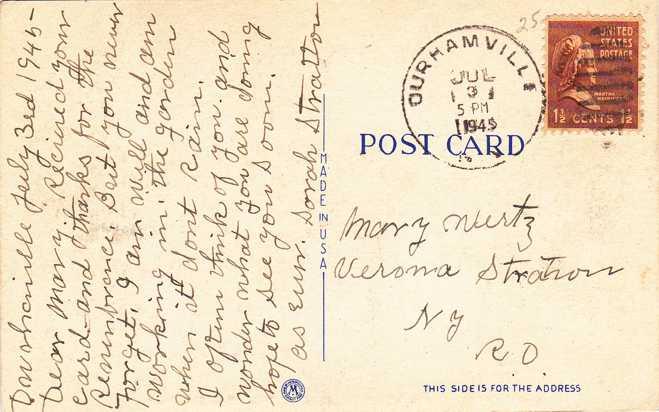 Durhamville July 3rd 1945-
Dear Mary. Recived your
card and thanks for the
Remenbrence But you never
forget, I am well and am
working in the garden
when it dont rain.
I often think of you and
wonder what you are doing
hope to see you soon.
as ever. Sarah Stratton
MADE IN USA
25
DURHAMVILLE
JUL
3
5 PM
1945
UNITED
STATES
POSTAGE
MARTHA
1½ CENTS 1½
POST CARD
Mary Wertz
Verona Station
NY
R.D.
THIS SIDE IS FOR THE ADDRESS